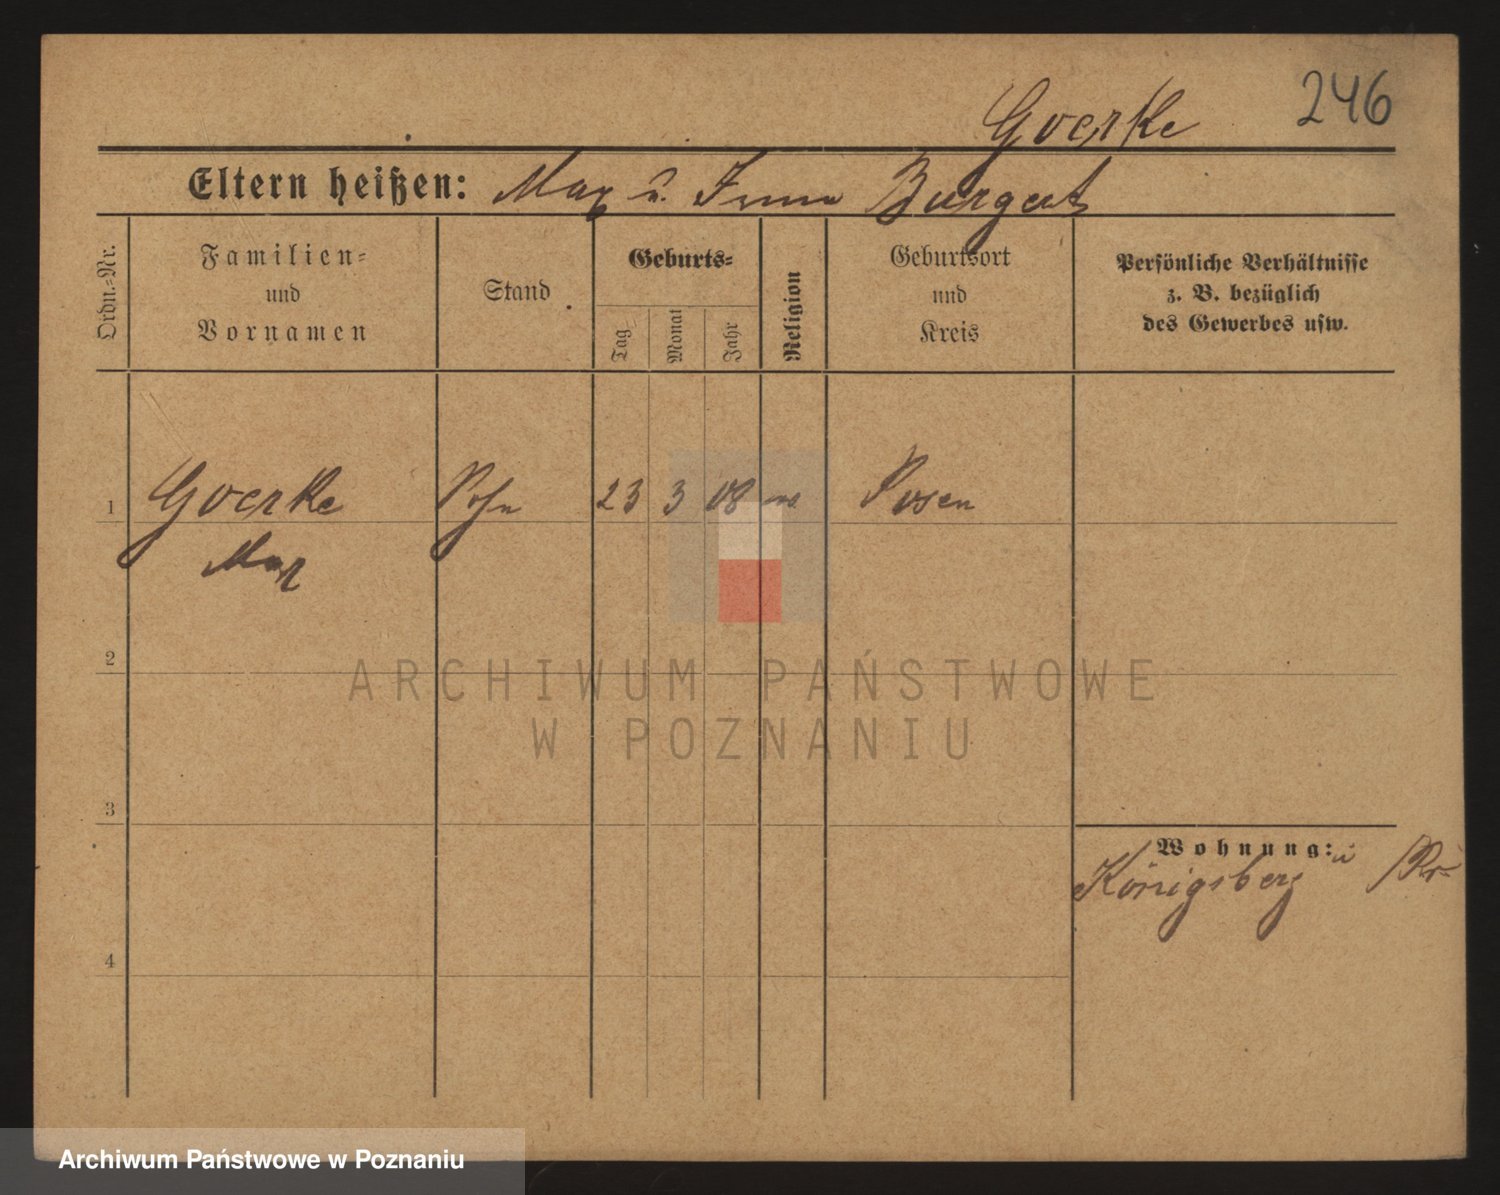 246
Goerke
Eltern heißen: Max u. Irma Burgert
Ordn.-Nr.
Familien-
und
Vornamen
Stand
Geburts-
Tag
Monat
Jahr
Religion
Geburtsort
und
Kreis
Persönliche Verhältnisse
z. B. bezüglich
des Gewerbes usw.
1 Goerke Sohn 23 3 08 Posen
Max
2
ARCHIWUM PAŃSTWOWE
W POZNANIU
3
Wohnung:
Königsberg i Pr.
4
Archiwum Państwowe w Poznaniu